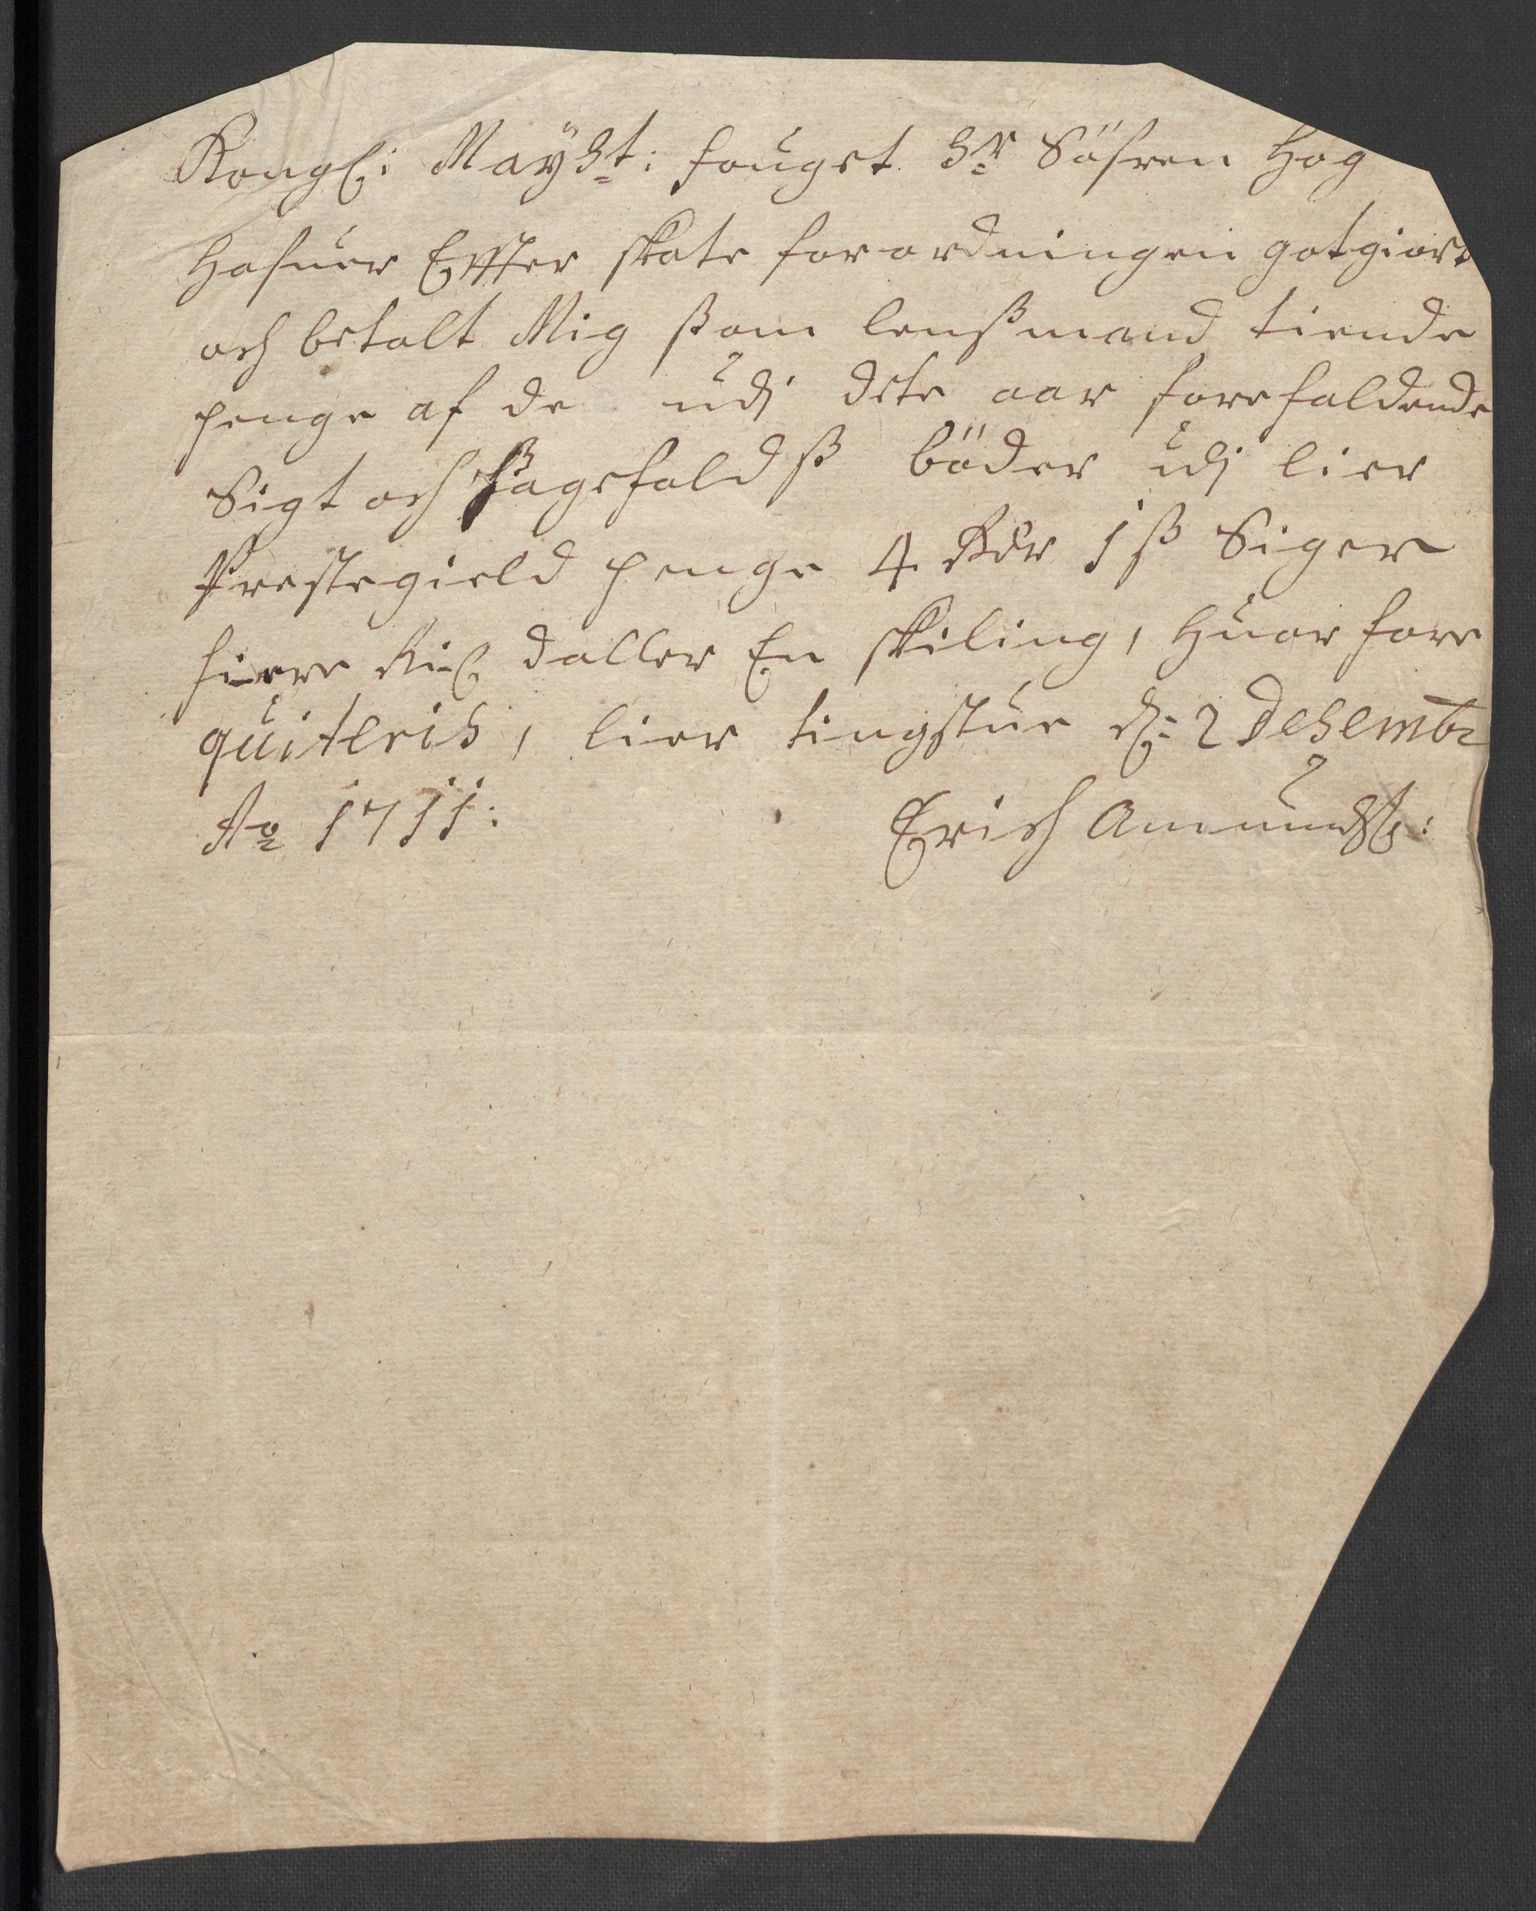 Kongl: Mayst: fouget Hr Söfren Hog
Hafuer Effter skate forordningen gotgiort
och betalt Mig ßom lenßmand tiende
penge af de udj dete aar forefaldende
Sigt och ßagefaldß böder udj lier
Prestegield penge 4 Rdr 1 ß Siger
fiere Rix daller En skiling, Huor fore
quiteris, lier tingstue d: 2 Desembr
Ao 1711:
Erich Amundß: